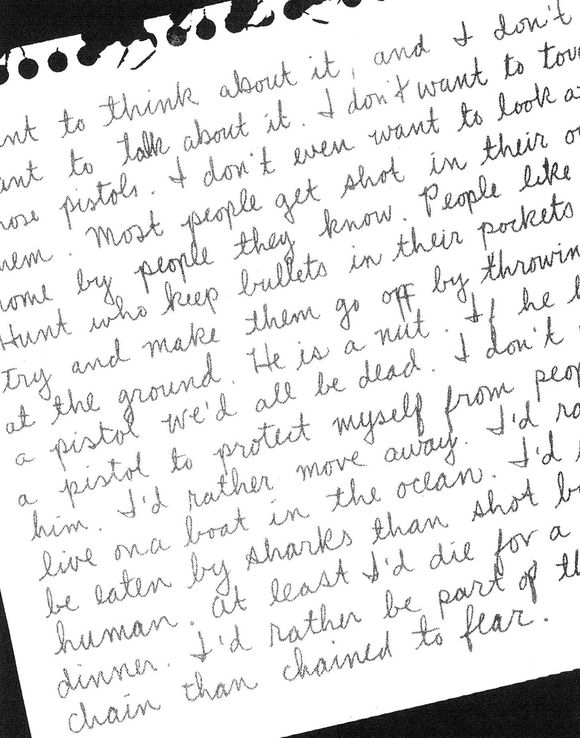 nt to think about it, and I don't
ant to talk about it. I don't want to tou
hose pistols. I don't even want to look a
hem. Most people get shot in their o
home by people they know. People like
Hunt who keep bullets in their pockets
try and make them go off by throwin
at the ground. He is a nut. If he h
a pistol we'd all be dead. I don't
a pistol to protect myself from peop
him. I'd rather move away. I'd ra
live on a boat in the ocean. I'd
be eaten by sharks than shot b
human. At least I'd die for a
dinner. I'd rather be part of th
chain than chained to fear.